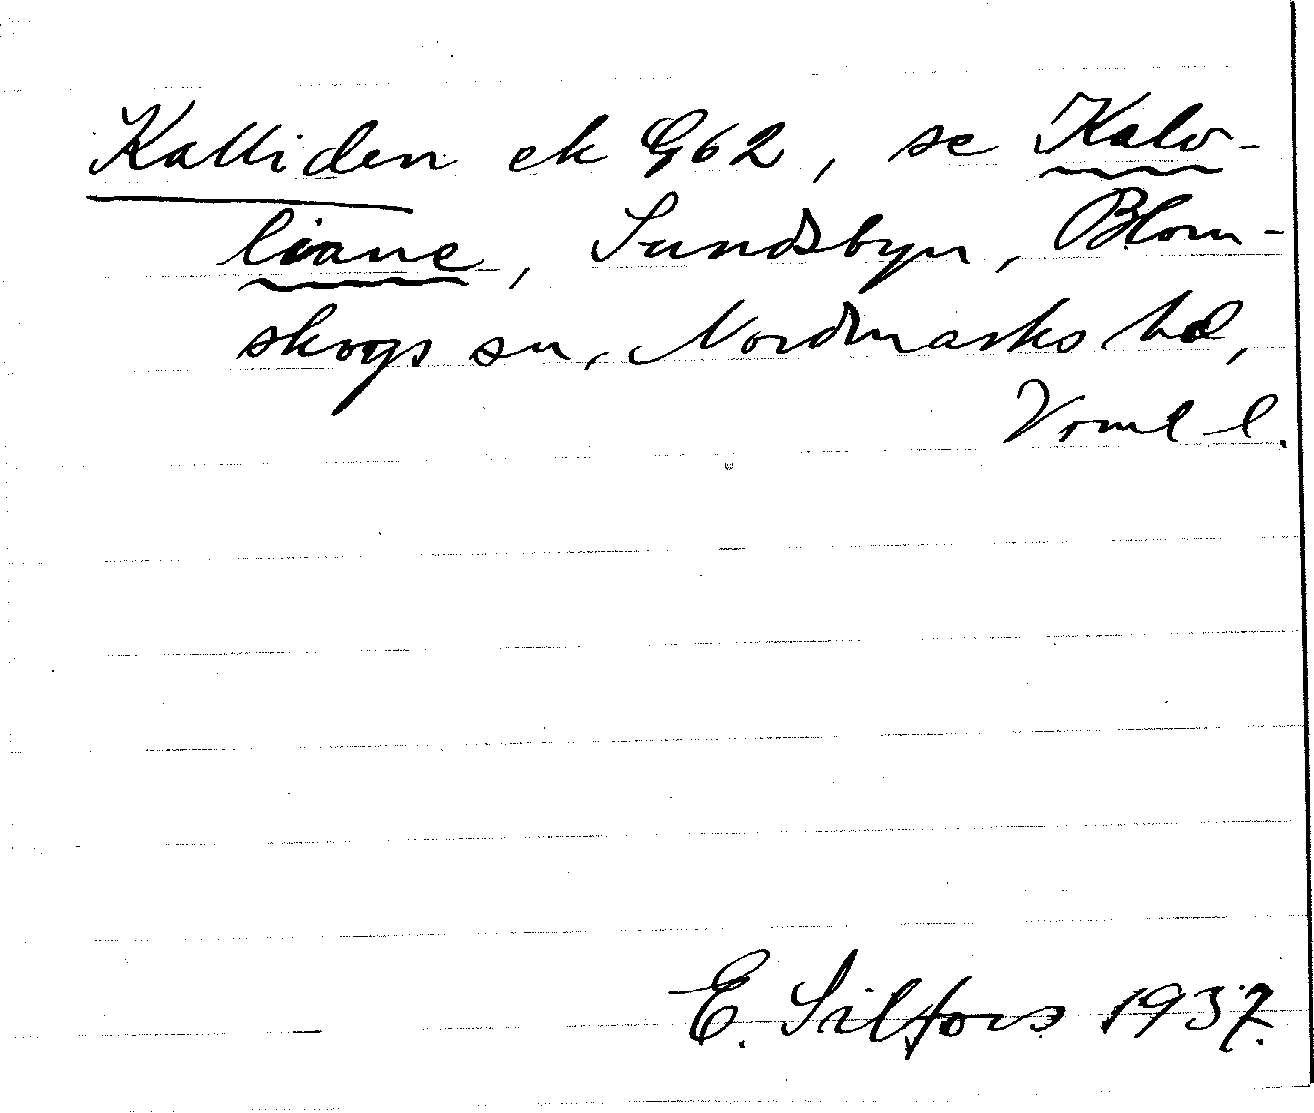 Kalliden ek G62, se Kalv-
liane, Sundsbyn, Blom-
skogs sn, Nordmarks hd,
Vrml l.
E. Silfors 1937.